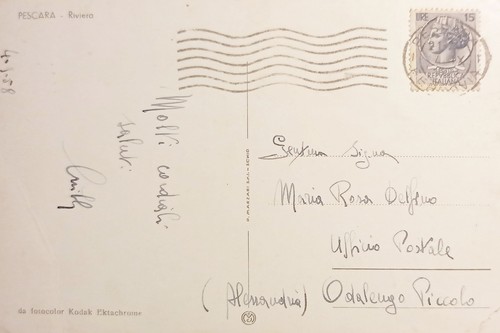 PESCARA - Riviera
LIRE 15
4-1-58
Molti cordiali
saluti
Gentma Signa
Maria Rosa Delfino
Ufficio Postale
(Alessandria) Odalengo Piccolo
da fotocolor Kodak Ektachrome